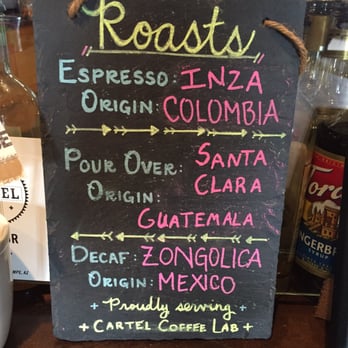 Roasts
ESPRESSO: INZA
ORIGIN: COLOMBIA
POUR OVER: SANTA
ORIGIN: CLARA
GUATEMALA
DECAF: ZONGOLICA
ORIGIN: MEXICO
+ Proudly serving +
+ CARTEL COFFEE LAB +
EL
BR
Tora
GINGERB
SYRUP